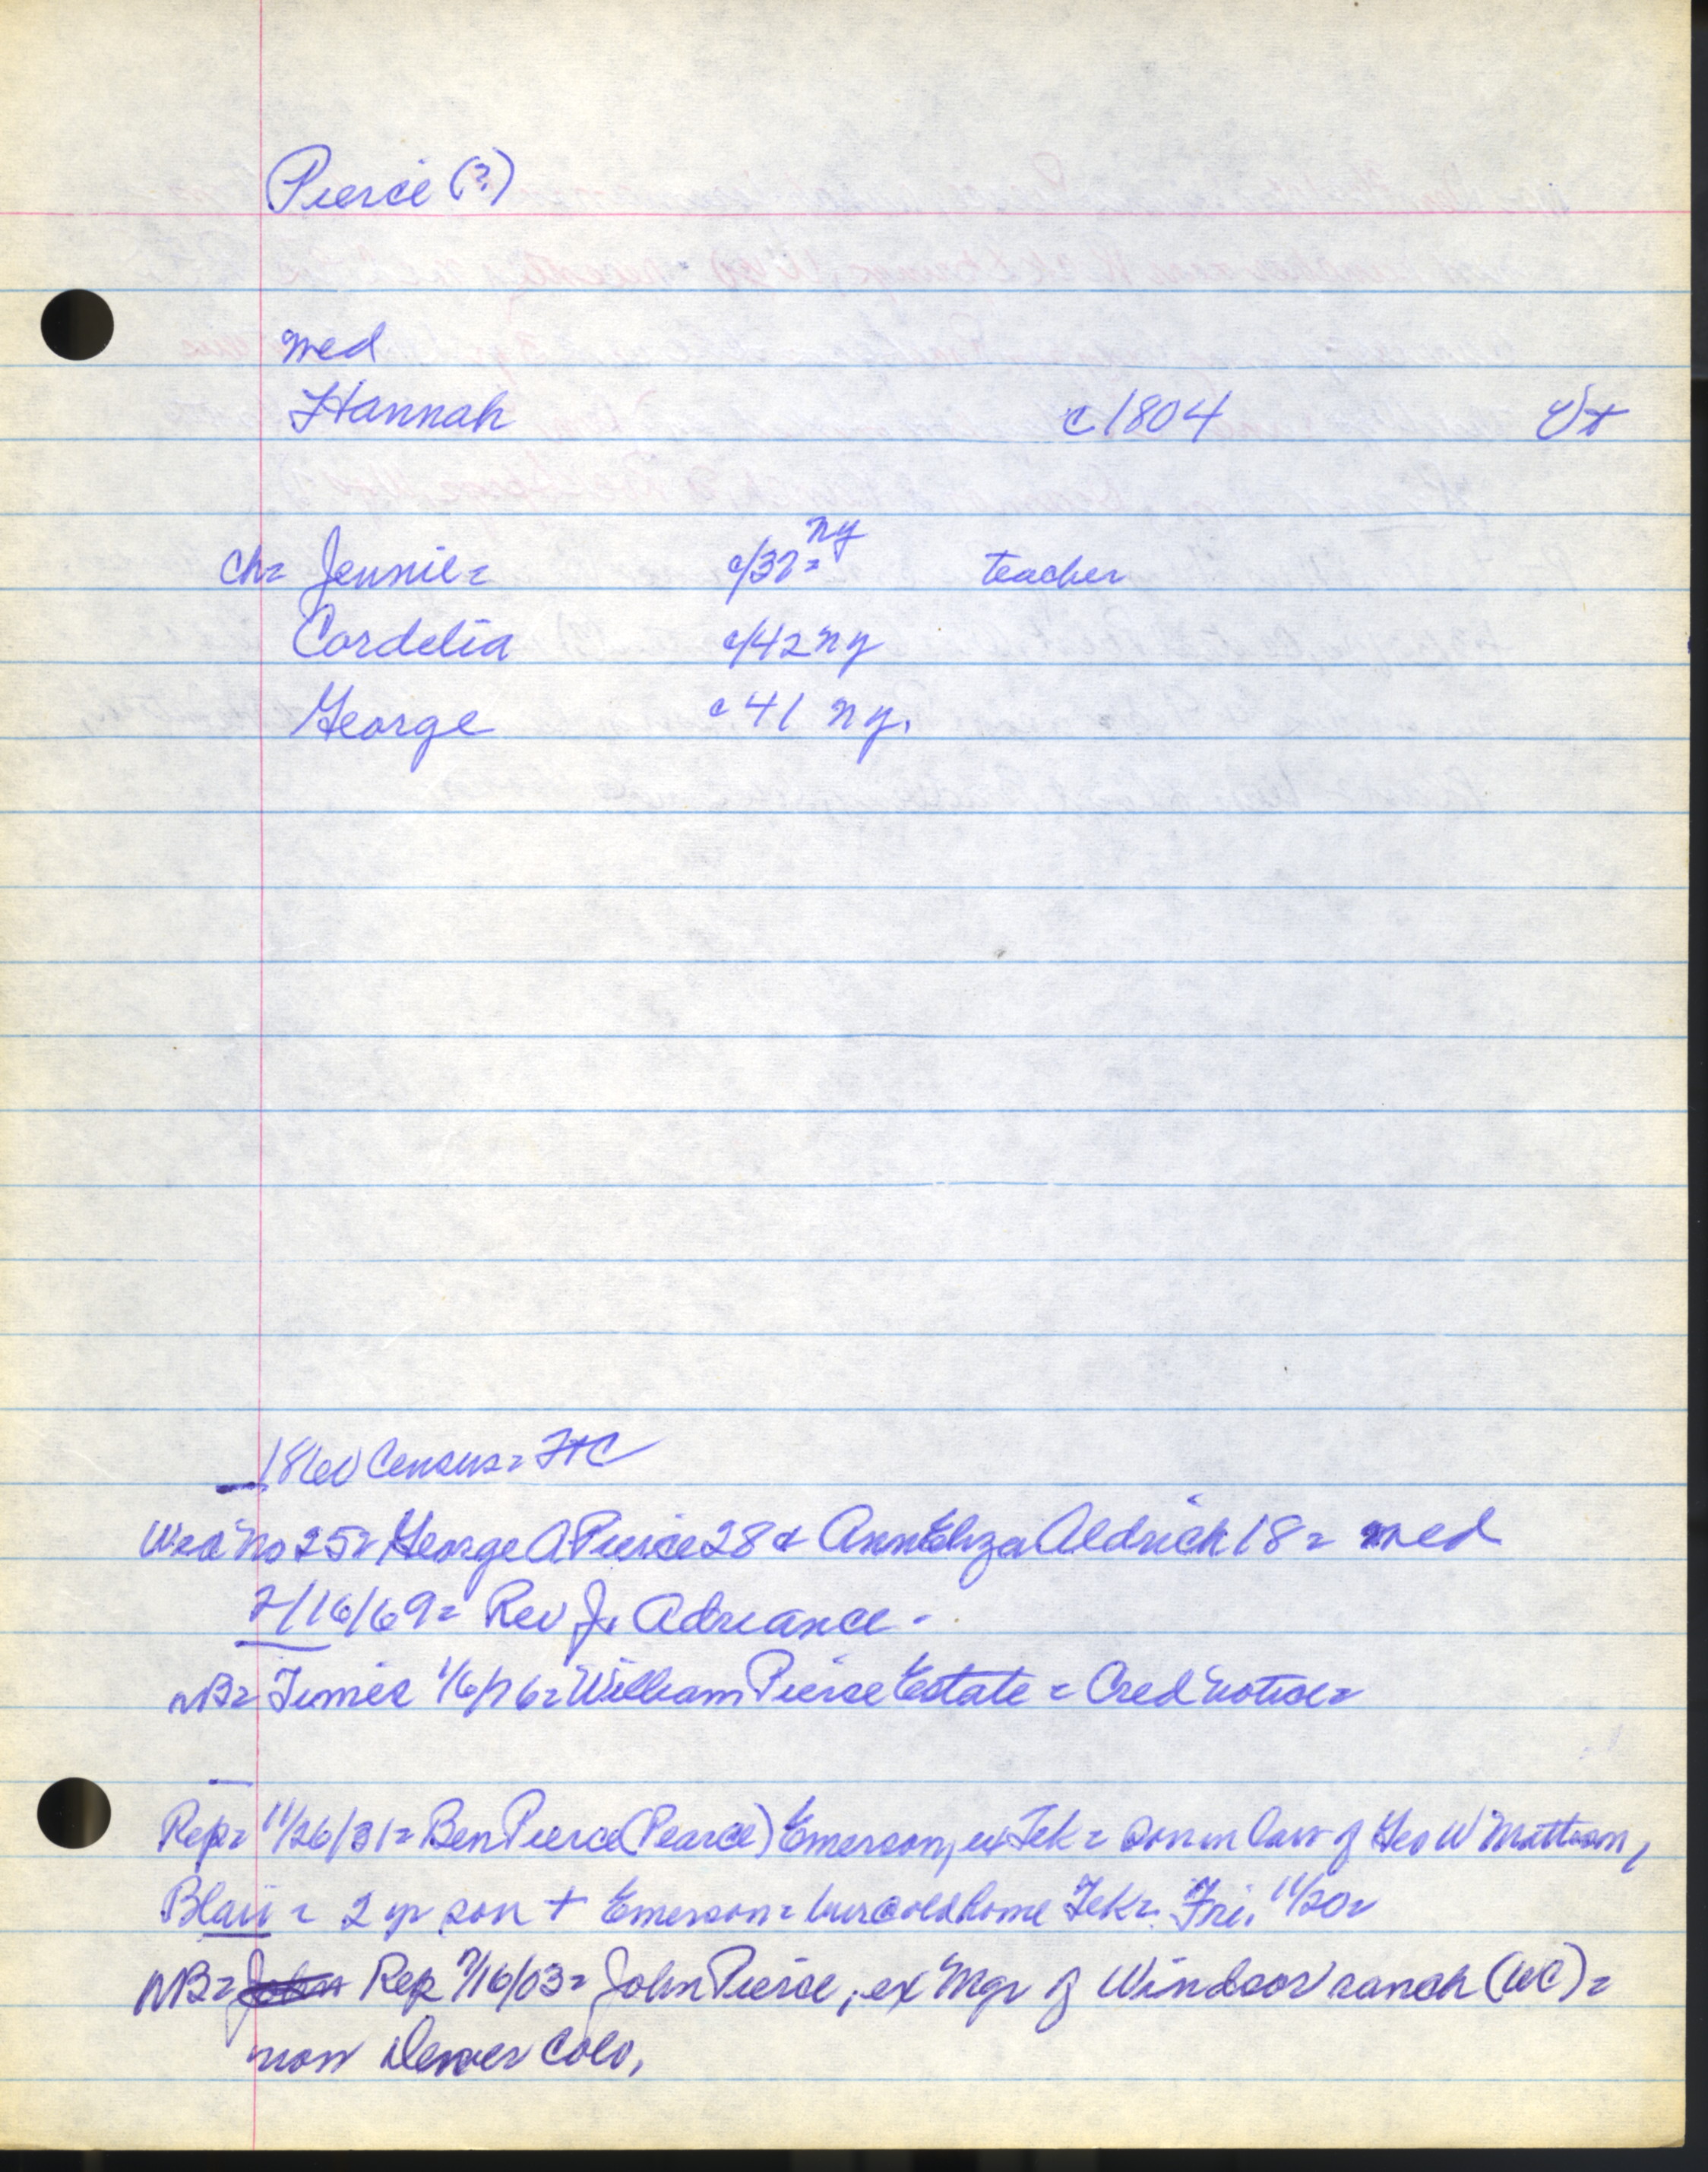 Pierce (?)
med
Hannah c1804 Vt
ch= Jennie= c/37= ny teacher
Cordelia c/42 ny
George c41 ny.
1860 Census= FtC
George A Pierce 28 & Ann Eliza Aldrich 18= med
7/16/69= Rev J. Adriance.
NB= Times 1/6/76= William Pierce Estate = Cred notice=
Rep= 11/26/31= Ben Pierce (Pearce) Emerson, ex Tek = son in law of Geo W Mattson,
Blair = 2 yr son + Emerson= old home Tek= Fri. 11/20=
NB= John Rep 7/16/03= John Pierce, ex Mgr of Windsor ranch (WC)=
now Denver Colo,